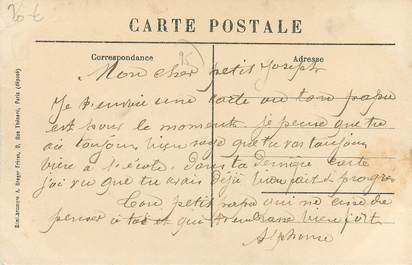 20 €
CARTE POSTALE
Correspondance
Adresse
Mon cher petit Joseph
Je t'envoie une carte ou ton papa
est pour le moment. je pense que tu
ais toujours bien sage que tu vas toujours
bien a l'école. Dans ta dernière carte
j'ai vu que tu avais déjà bien fait de progres
Ton petit papa qui ne cesse de
penser a toi et qui t'embrasse bien fort
Alphonse